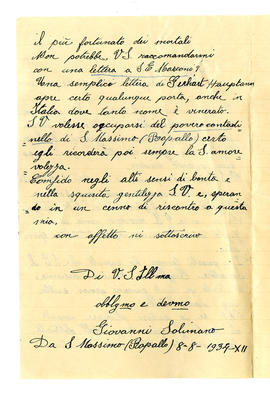 il più fortunato dei mortali
Non potrebbe V. S. raccomandarmi
con una lettera a S. E. Marconi?
Una semplice lettera di Gerhart Hauptmann
apre certo qualunque porta, anche in
Italia dove tanto nome è venerato.
S. V. volesse occuparsi del povero contadi-
nello di S. Massimo (Rapallo) certo
egli ricorderà poi sempre la S. amore
volezza.
Confido negli alti sensi di bontà e
nella squisita gentilezza S. V. e, speran
do in un cenno di riscontro a questa
mia.
con affetto mi sottoscrivo
Di V. S. Ill.ma
obblgmo e devmo
Giovanni Solimano
Da S. Massimo (Rapallo) 8-8-1934-XII